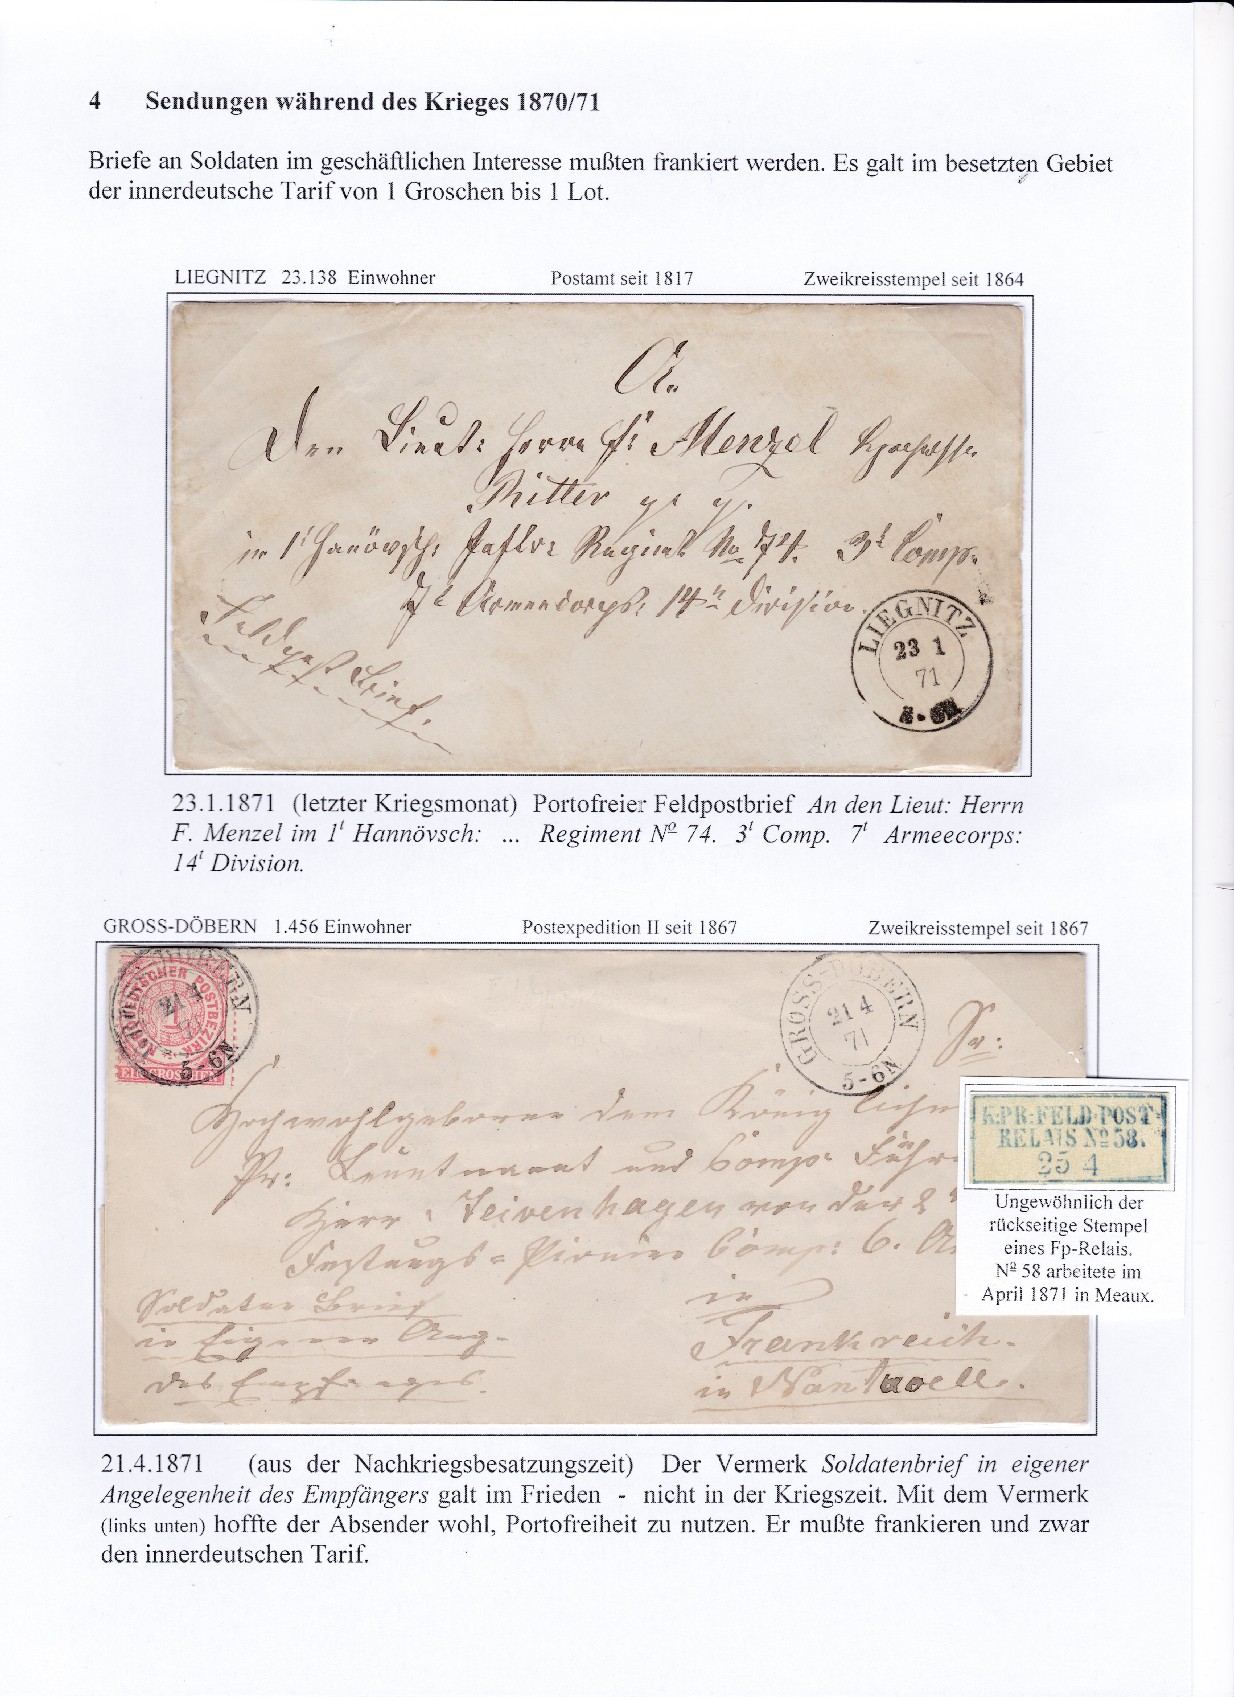 4 Sendungen während des Krieges 1870/71
Briefe an Soldaten im geschäftlichen Interesse mußten frankiert werden. Es galt im besetzten Gebiet
der innerdeutsche Tarif von 1 Groschen bis 1 Lot.
LIEGNITZ 23.138 Einwohner Postamt seit 1817 Zweikreisstempel seit 1864
An
Den Lieut: Herrn F: Menzel
Ritter pp pp.
im 1t Hanövsch: Regimt No 74. 3t Comp.
7t Armeecorps: 14tn Division.
Feldpost Brief.
LIEGNITZ
23 1
71
23.1.1871 (letzter Kriegsmonat) Portofreier Feldpostbrief An den Lieut: Herrn
F. Menzel im 1t Hannövsch: ... Regiment No 74. 3t Comp. 7t Armeecorps:
14t Division.
GROSS-DÖBERN 1.456 Einwohner Postexpedition II seit 1867 Zweikreisstempel seit 1867
NORDDEUTSCHER POSTBEZIRK
1
EIN GROSCHEN
21 4
5-6N
GROSS-DÖBERN
21 4
71
5-6N
Sr:
Hochwohlgeboren dem König lichen
Pr: Leutnant und Comp: Führ
Herr von der 2
Festungs-Pionier Comp: 6. A
in
Frankreich.
in
Soldaten Brief
in Eigener Ang-
des Empfängers.
K:PR:FELD-POST-
RELAIS No 58.
25 4
Ungewöhnlich der
rückseitige Stempel
eines Fp-Relais.
No 58 arbeitete im
April 1871 in Meaux.
21.4.1871 (aus der Nachkriegsbesatzungszeit) Der Vermerk Soldatenbrief in eigener
Angelegenheit des Empfängers galt im Frieden - nicht in der Kriegszeit. Mit dem Vermerk
(links unten) hoffte der Absender wohl, Portofreiheit zu nutzen. Er mußte frankieren und zwar
den innerdeutschen Tarif.